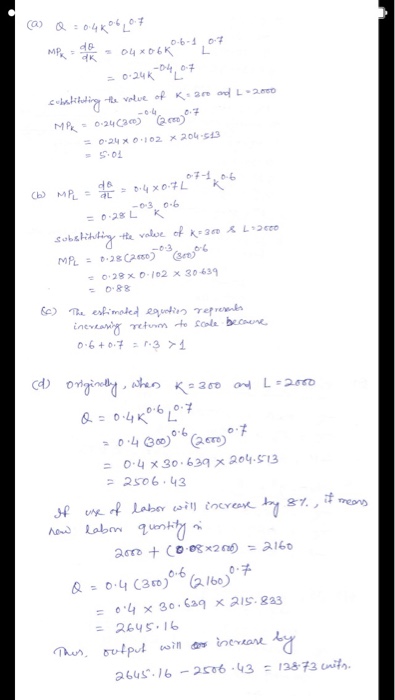 (a) Q = 0.4K^0.6 L^0.7
MP_K = dQ/dK = 0.4 × 0.6K^0.6-1 L^0.7
= 0.24K^-0.4 L^0.7
substituting the value of K = 300 and L = 2000
MP_K = 0.24(300)^-0.4 (2000)^0.7
= 0.24 × 0.102 × 204.513
= 5.01
(b) MP_L = dQ/dL = 0.4 × 0.7L^0.7-1 K^0.6
= 0.28 L^-0.3 K^0.6
substituting the value of K = 300 & L = 2000
MP_L = 0.28 (2000)^-0.3 (300)^0.6
= 0.28 × 0.102 × 30.639
= 0.88
(c) The estimated equation represents
increasing return to scale because
0.6 + 0.7 = 1.3 > 1
(d) Originally, when K = 300 and L = 2000
Q = 0.4K^0.6 L^0.7
= 0.4 (300)^0.6 (2000)^0.7
= 0.4 × 30.639 × 204.513
= 2506.43
If use of labor will increase by 8%, it means
new labor quantity is
2000 + (0.08×2000) = 2160
Q = 0.4 (300)^0.6 (2160)^0.7
= 0.4 × 30.639 × 215.833
= 2645.16
Thus, output will increase by
2645.16 - 2506.43 = 138.73 units.